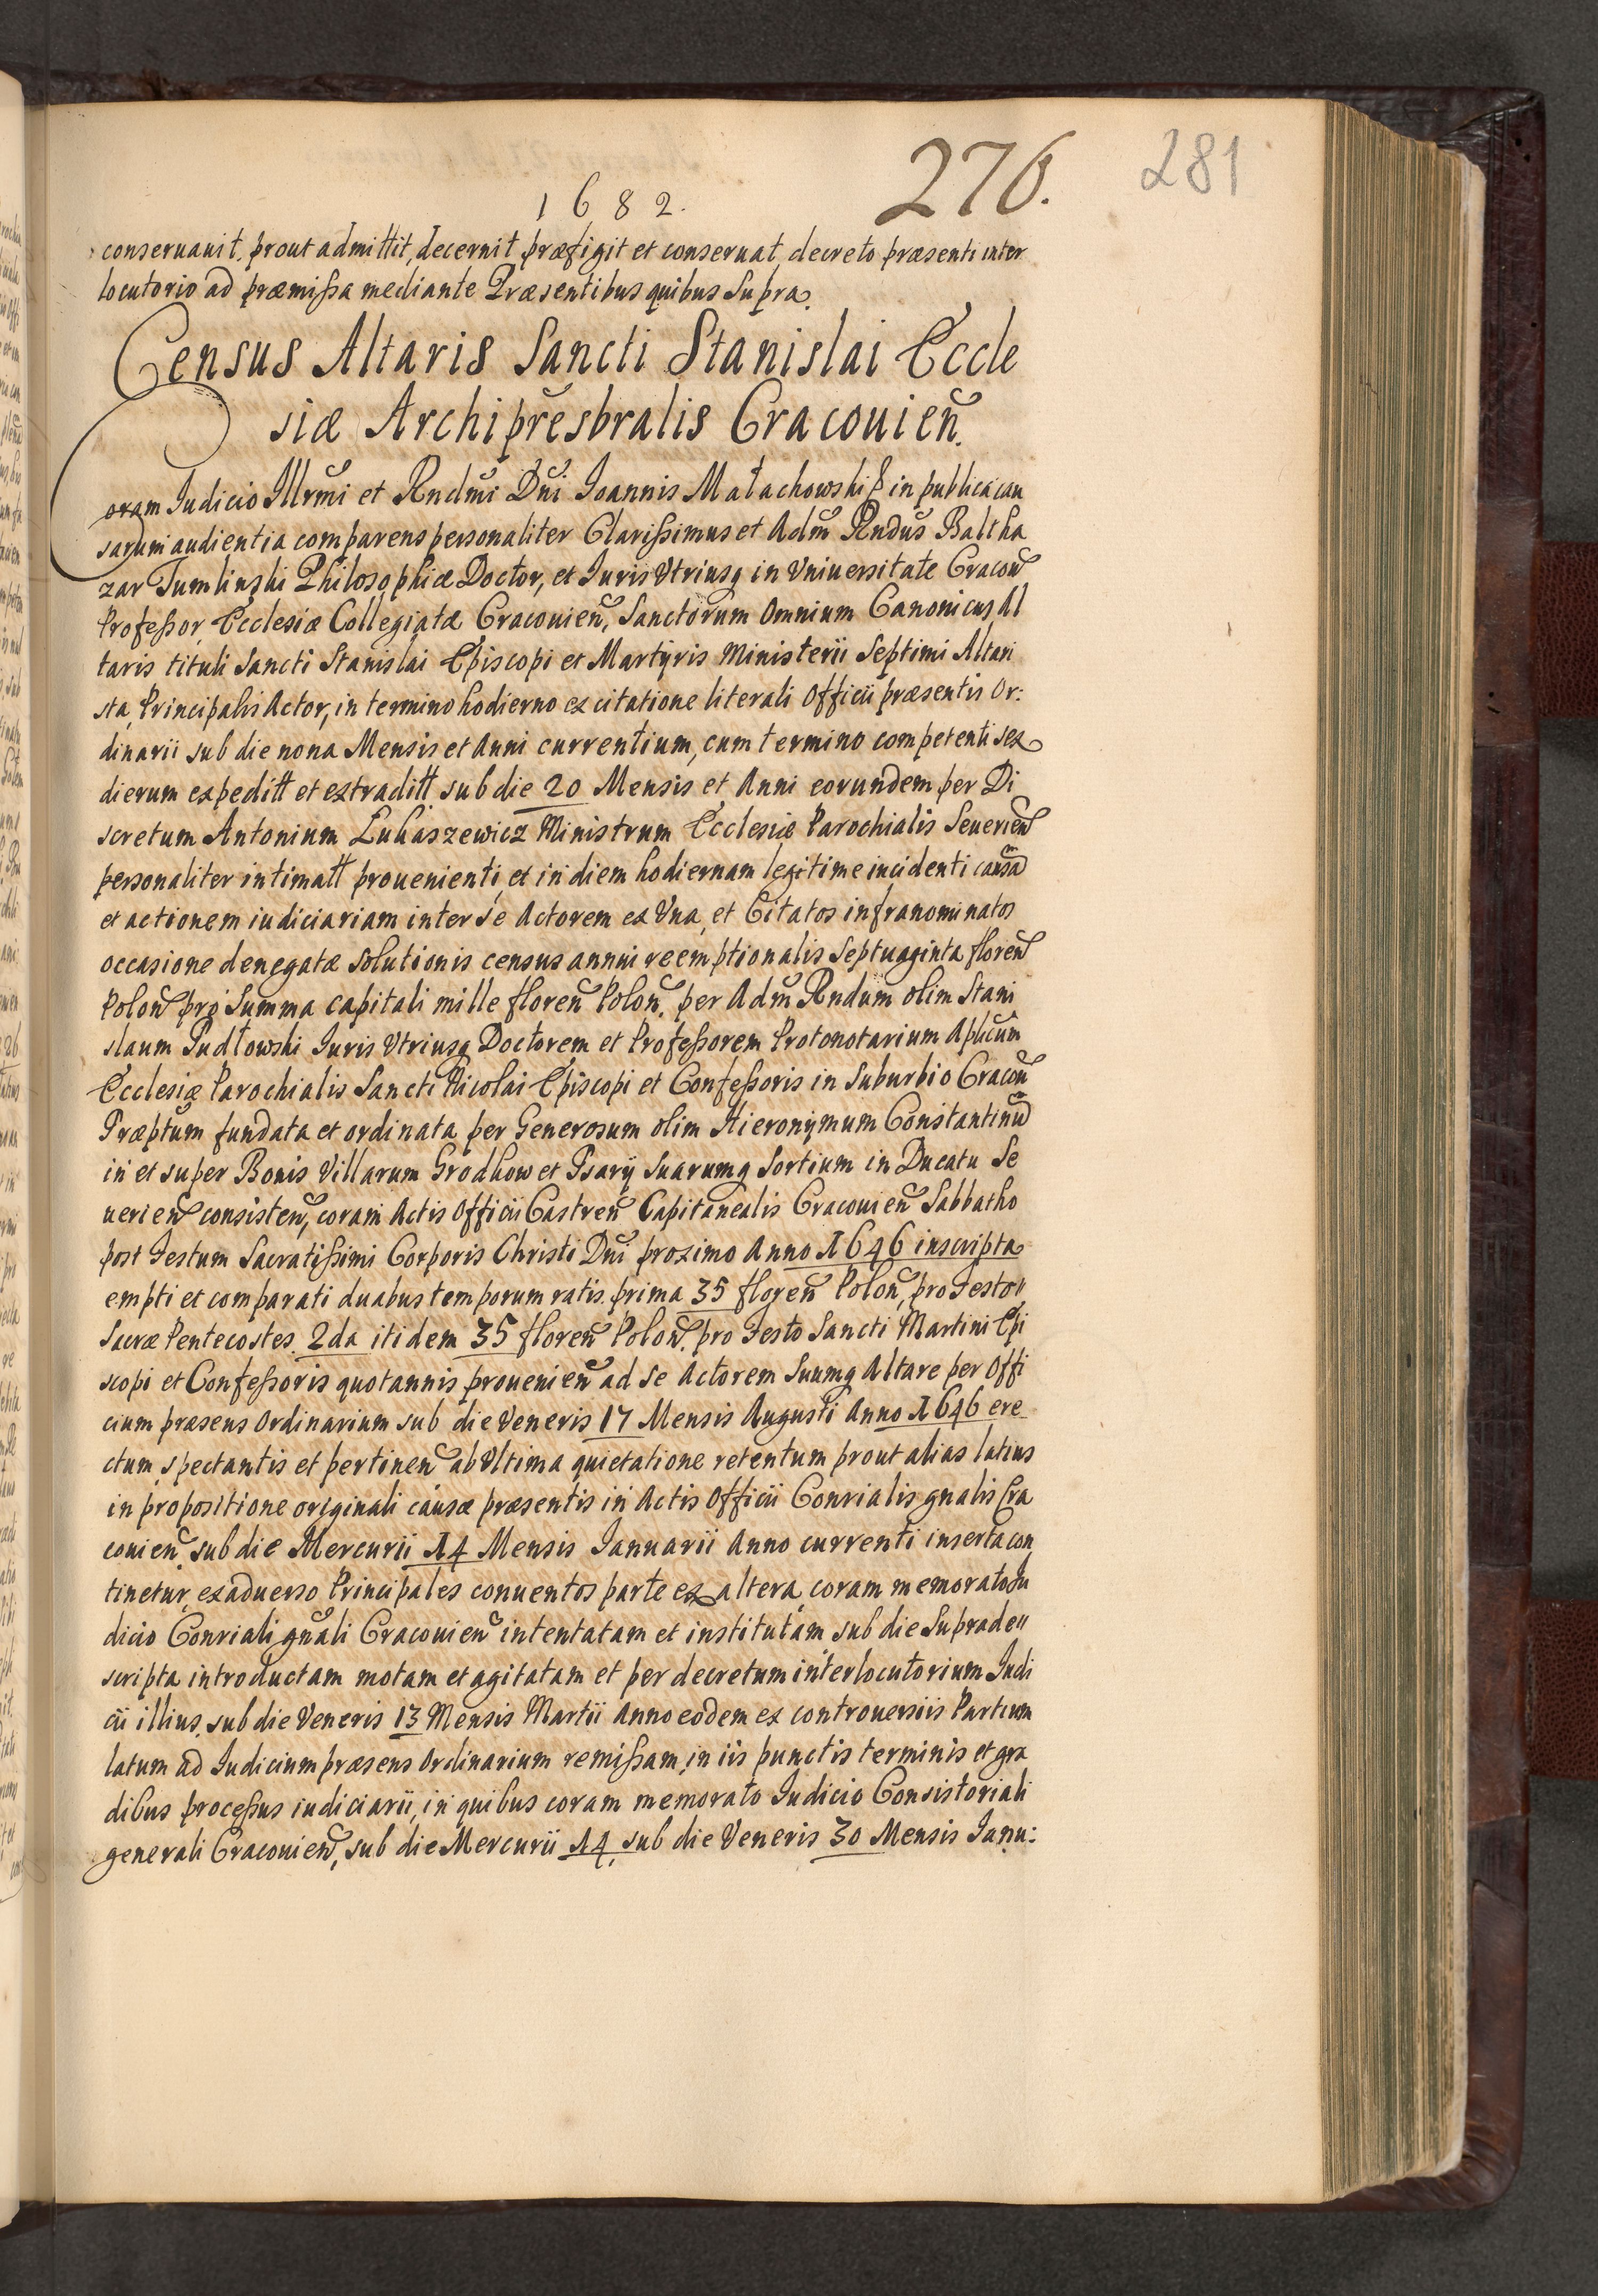 1682.
276.
281
conseruauit, prout admittit, decernit præfigit et conseruat, decreto præsenti inter
locutorio ad præmissa mediante Præsentibus quibus Supra.
Census Altaris Sancti Stanislai Eccle
siæ Archiprĕsbralis Cracouień.
Coram Iudicio Illrm̃i et Rndm̃i Dñi Ioannis Małachowski in publica cau
sarum audientia comparens personaliter Clarissimus et Adm̃ Rndus Baltha
zar Tumlinski Philosophiæ Doctor, et Iuris Vtriusq in Vniuersitate Cracou̅
Professor, Ecclesiæ Collegiatæ Cracouien̅, Sanctorum Omnium Canonicus, Al
taris tituli Sancti Stanislai Episcopi et Martyris Ministerii Septimi Altari
sta, Principalis Actor, in termino hodierno ex citatione literali Officii præsentis Or:
dinarii sub die nona Mensis et Anni currentium, cum termino competenti sex
dierum expeditt et extraditt sub die 20 Mensis et Anni eorundem per Di
scretum Antonium Lukaszewicz Ministrum Ecclesiæ Parochialis Seuerien̅
personaliter intimatt prouenienti, et in diem hodiernam legitime incidenti causa̅
et actionem iudiciariam inter se Actorem ex Vna, et Citatos infranominatos
occasione denegatæ Solutionis census annui reemptionalis Septuaginta floren̅
Polon̅ pro Summa capitali mille floren̅ Polon̅, per Adm̅ Rndum olim Stani
slaum Pudłowski Iuris Vtriusq Doctorem et Professorem Protonotarium Aplicum̅
Ecclesiæ Parochialis Sancti Nicolai Episcopi et Confessoris in Suburbio Cracou̅
Præptum̅ fundata et ordinata per Generosum olim Hieronymum Constantinu̅
in et super Bonis Villarum Grodkow et Psary Suarumq Sortium in Ducatu Se
uerien̅ consisten̅, coram Actis Officii Castren̅ Capitanealis Cracouien̅ Sabbatho
post Festum Sacratissimi Corporis Christi Dñi proximo Anno 1646 inscripta
empti et comparati duabus temporum ratis, prima 35 floren̅ Polon̅, pro Festo
Sacræ Pentecostes, 2da itidem 35 floren̅ Polon̅, pro Festo Sancti Martini Epi
scopi et Confessoris quotannis prouenien̅ ad se Actorem Suumq Altare per Offi
cium præsens Ordinarium sub die Veneris 17 Mensis Augusti Anno 1646 ere
ctum spectantis et pertinen̅ ab Vltima quietatione retentum prout alias latius
in propositione originali causæ præsentis in Actis Officii Conrialis gnalis Cra
couien̅ sub die Mercurii 14 Mensis Ianuarii Anno currenti inserta con
tinetur, ex aduerso Principales conuentos parte ex altera, coram memorato Iu
dicio Conriali gnali Cracouien̅ intentatam et institutam sub die Suprade
scripta introductam motam et agitatam et per decretum interlocutorium Iudi
cii illius, sub die Veneris 13 Mensis Martii Anno eodem ex controuersiis Partium
latum ad Iudicium præsens Ordinarium remissam, in iis punctis terminis et gra
dibus processus iudiciarii, in quibus coram memorato Iudicio Consistoriali
generali Cracouien̅, sub die Mercurii 14, sub die Veneris 30 Mensis Ianu: